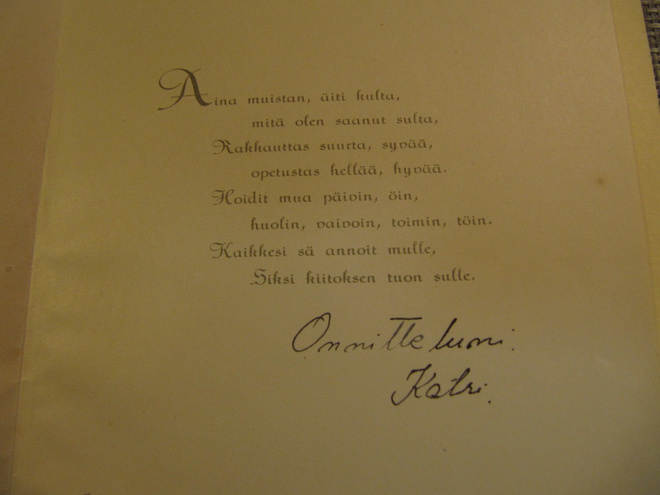 Aina muistan, äiti kulta,
mitä olen saanut sulta,
Rakkauttas suurta, syvää,
opetustas hellää, hyvää.
Hoidit mua päivin, öin,
huolin, vaivoin, toimin, töin.
Kaikkesi sä annoit mulle,
Siksi kiitoksen tuon sulle.
Onnitteluni.
Katri.